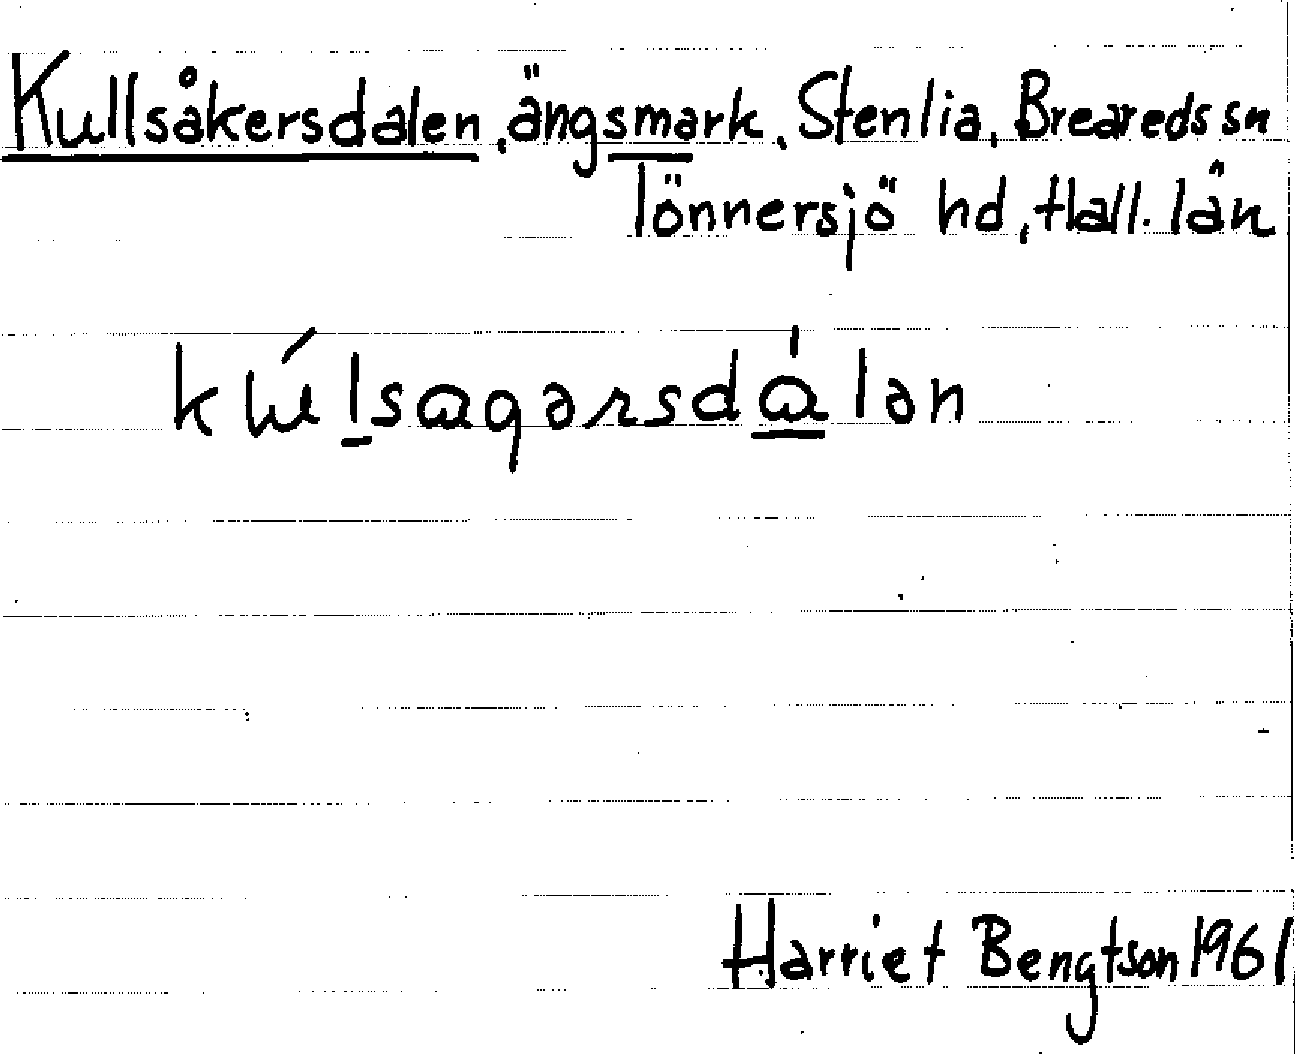 Kullsåkersdalen, ängsmark, Stenlia, Breareds sn
Tönnersjö hd, Hall. län
kúlsagərsdálən
Harriet Bengtson 1961